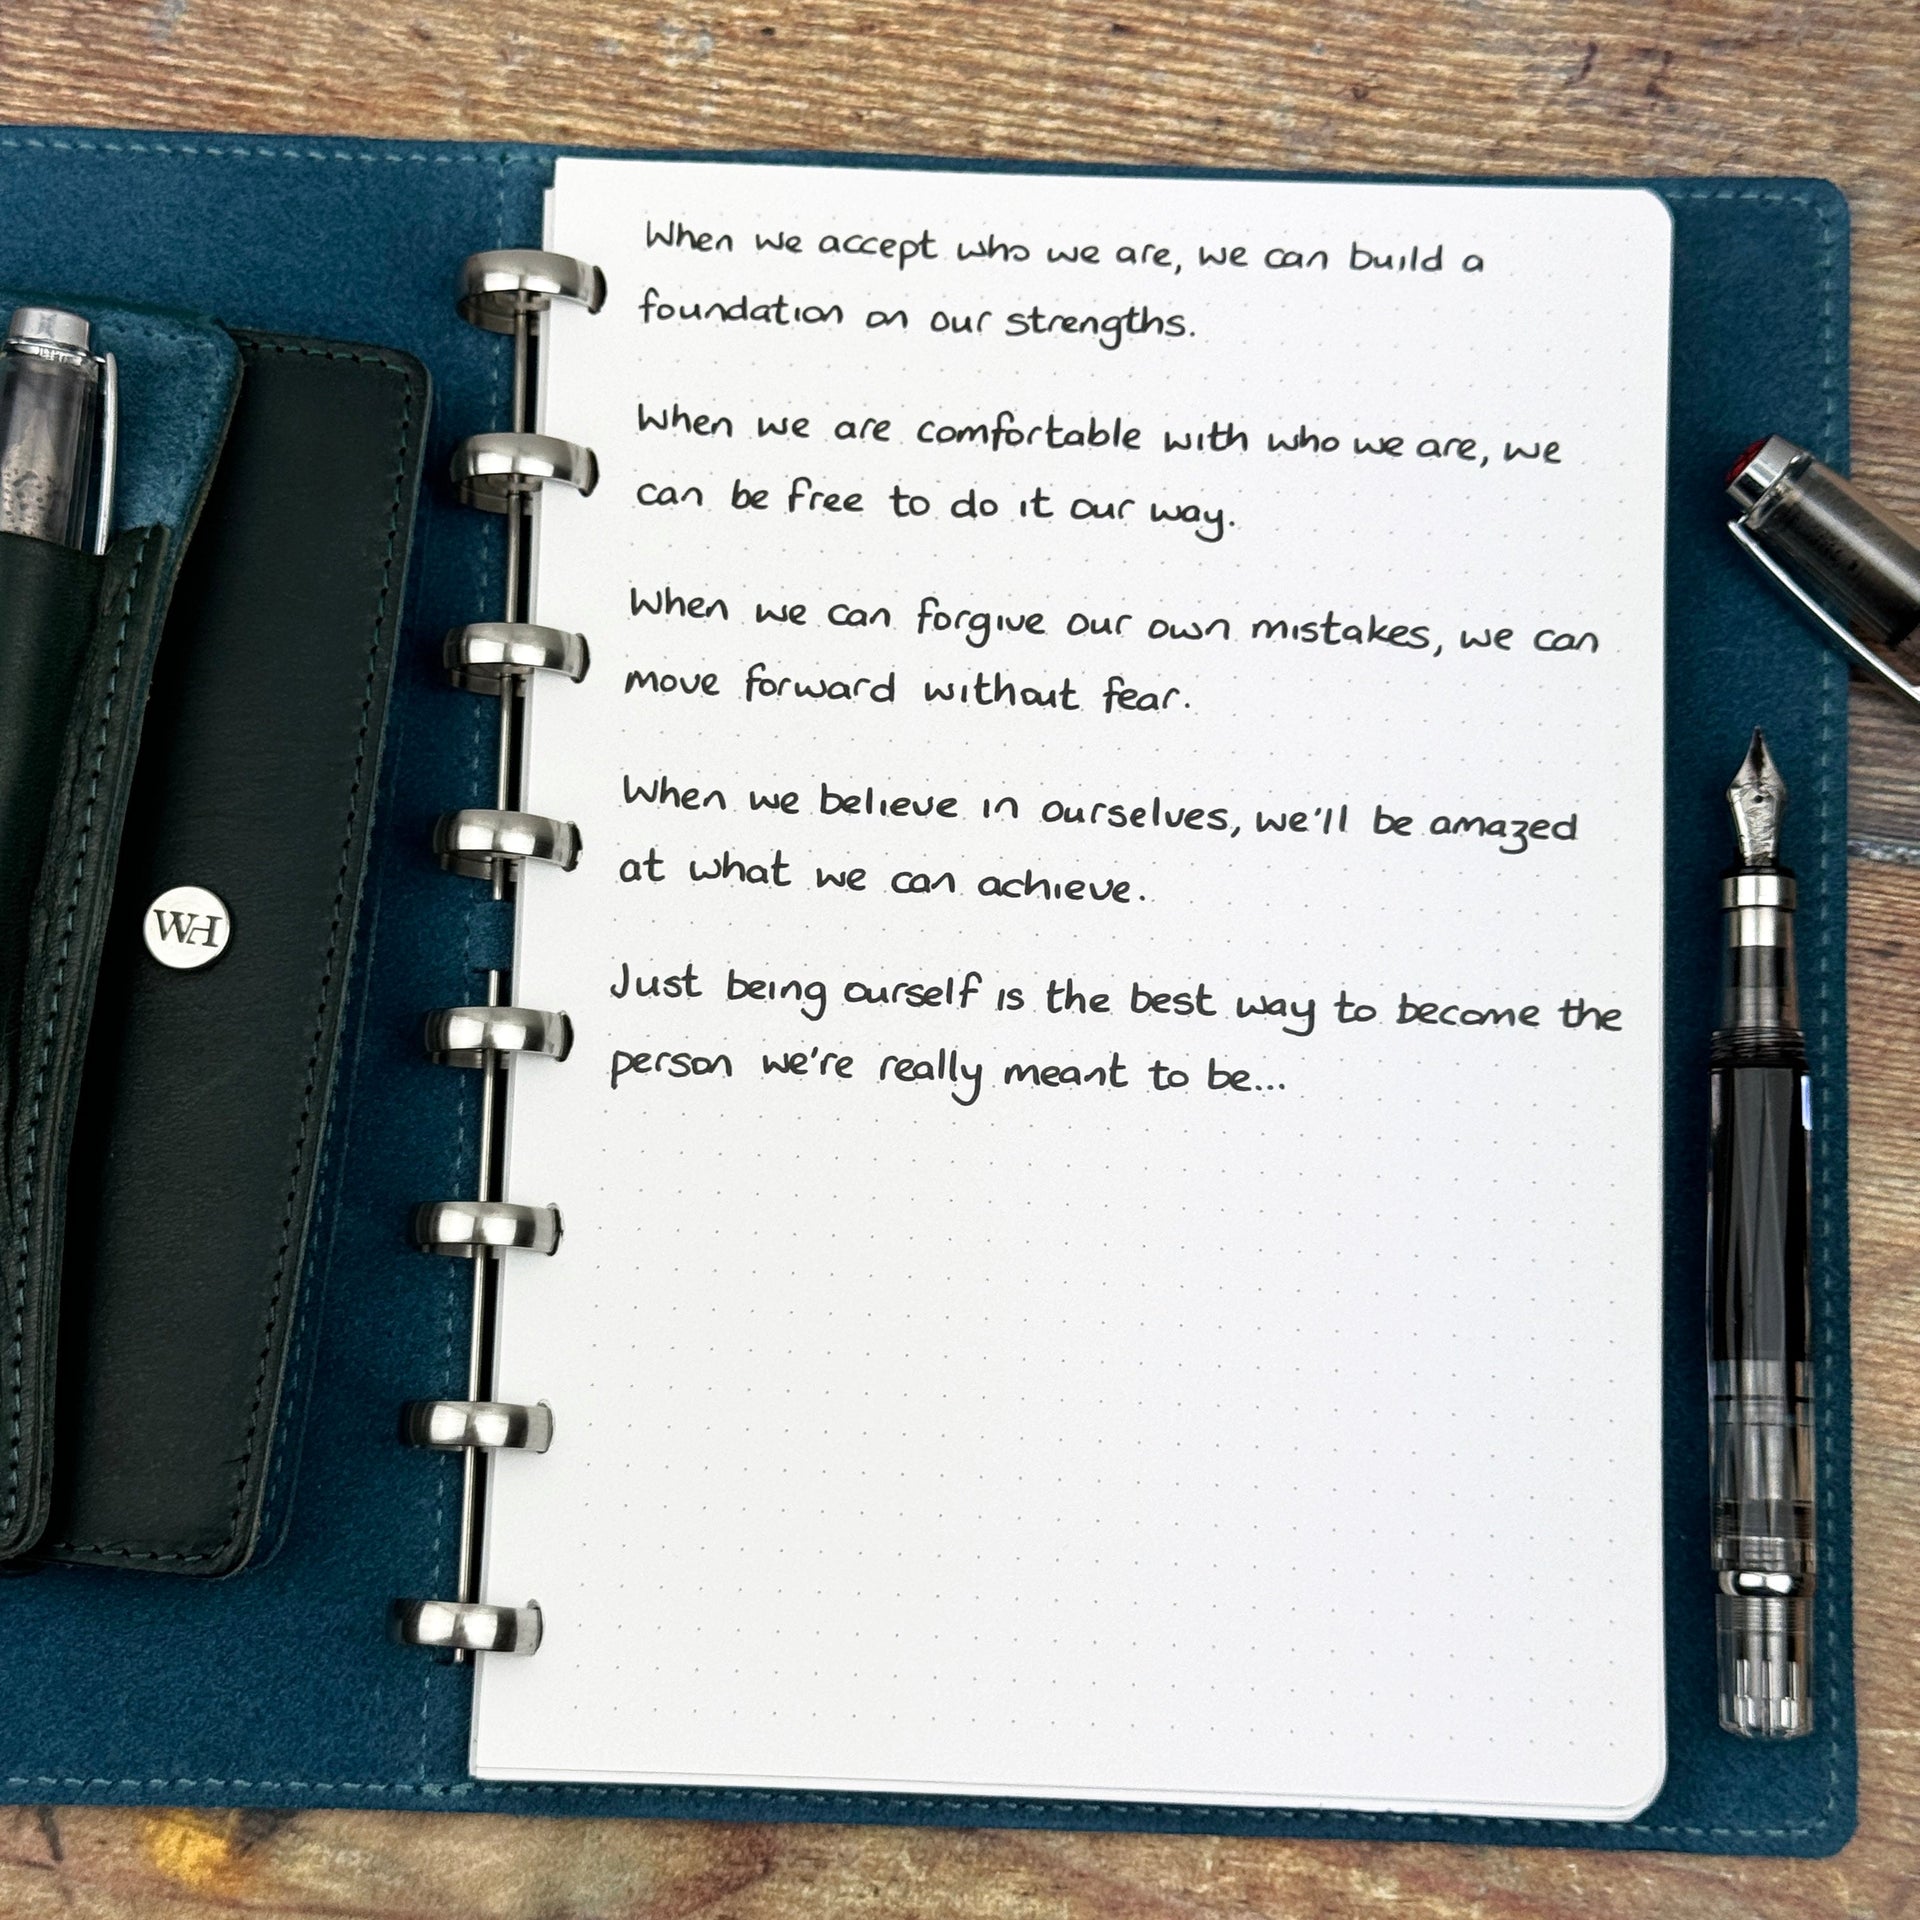 When we accept who we are, we can build a
foundation on our strengths.
When we are comfortable with who we are, we
can be free to do it our way.
When we can forgive our own mistakes, we can
move forward without fear.
When we believe in ourselves, we'll be amazed
at what we can achieve.
Just being ourself is the best way to become the
person we're really meant to be...
WH